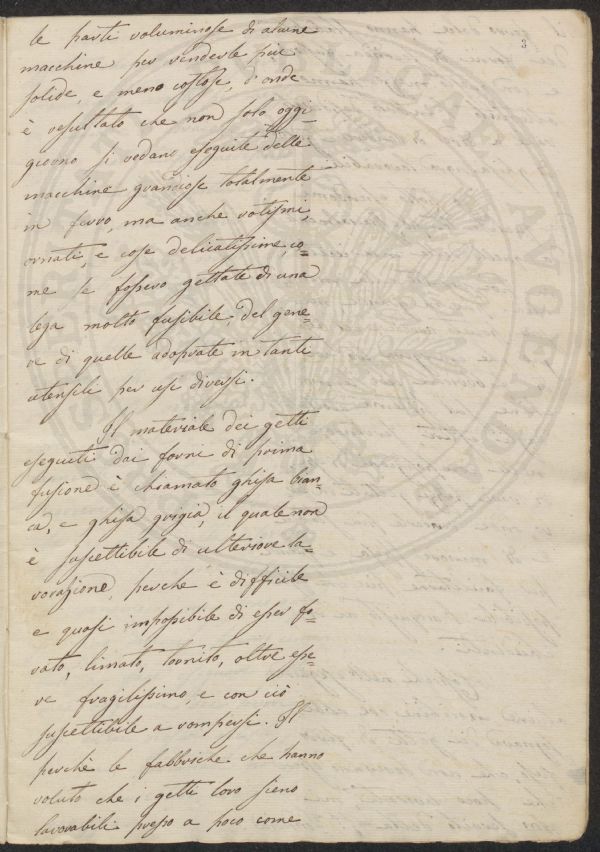 3
le parti voluminose di alcune
macchine per renderle più
solide, e meno costose, d'onde
è resultato che non solo oggi-
giorno si vedano eseguite delle
macchine grandiose totalmente
in ferro, ma anche
ornati, e cose delicatissime, co-
me se fossero gettate di una
lega molto fusibile, del gene-
re di quelle adoprate in tanti
utensili per usi diversi.
Il materiale dei getti
eseguiti dai forni di prima
fusione è chiamato ghisa bian-
ca, e ghisa grigia, il quale non
è suscettibile di ulteriore la-
vorazione, perchè è difficile
e quasi impossibile di esser fo-
rato, limato, tornito, oltre esse-
re fragilissimo, e con ciò
suscettibile a rompersi. Il
perchè le fabbriche che hanno
voluto che i getti loro sieno
lavorabili presso a poco come